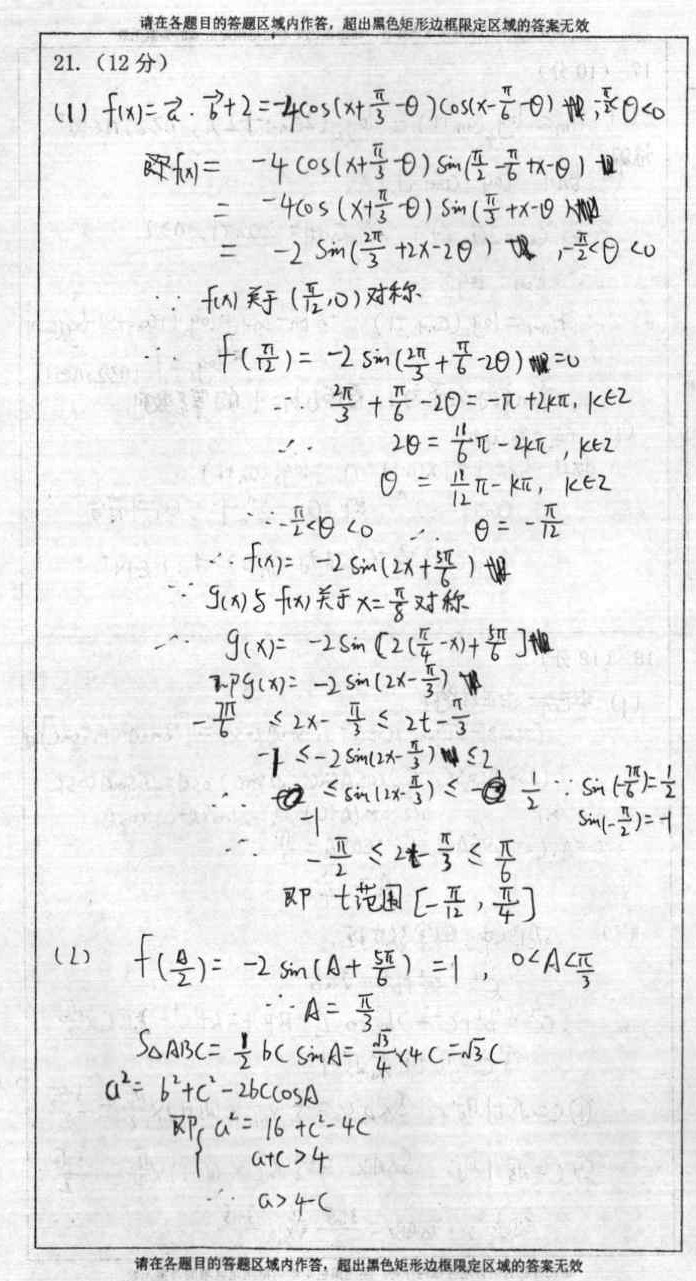 请在各题目的答题区域内作答，超出黑色矩形边框限定区域的答案无效
21.（12分）
(1) f(x)=a⃗·b⃗+2=-4cos(x+π/3-θ)cos(x-π/6-θ) , -π/2<θ<0
即f(x)= -4cos(x+π/3-θ)sin(π/2-π/6+x-θ)
= -4cos(x+π/3-θ)sin(π/3+x-θ)
= -2sin(2π/3+2x-2θ) , -π/2<θ<0
∵ f(x)关于(π/12,0)对称
∴ f(π/12)= -2sin(2π/3+π/6-2θ)=0
∴ 2π/3+π/6-2θ=-π+2kπ, k∈Z
∴ 2θ=11/6π-2kπ, k∈Z
θ=11/12π-kπ, k∈Z
∵ -π/2<θ<0 ∴ θ=-π/12
∴ f(x)= -2sin(2x+5π/6)
∵ g(x)与f(x)关于x=π/8对称
∴ g(x)= -2sin[2(π/4-x)+5π/6]
即g(x)= -2sin(2x-π/3)
-7π/6 ≤2x-π/3≤2t-π/3
-1≤-2sin(2x-π/3)≤2
∴ -1≤sin(2x-π/3)≤1/2 ∵ sin(-7π/6)=1/2
sin(-π/2)=-1
∴ -π/2≤2t-π/3≤π/6
即 t范围[-π/12, π/4]
(2) f(A/2)= -2sin(A+5π/6)=1 , 0<A<π/3
∴ A=π/3
S△ABC=1/2bcsinA=√3/4×4c=√3c
a²=b²+c²-2bccosA
即{a²=16+c²-4c
a+c>4
∴ a>4-c
请在各题目的答题区域内作答，超出黑色矩形边框限定区域的答案无效